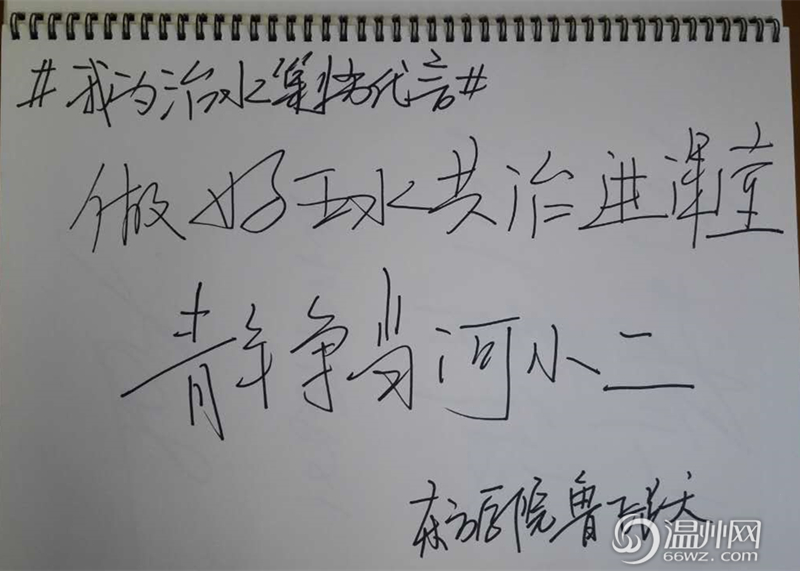 #我为治水代言#
做好五水共治进课堂
青年争当河小二
东方学院鲁
温州网
66WZ.com